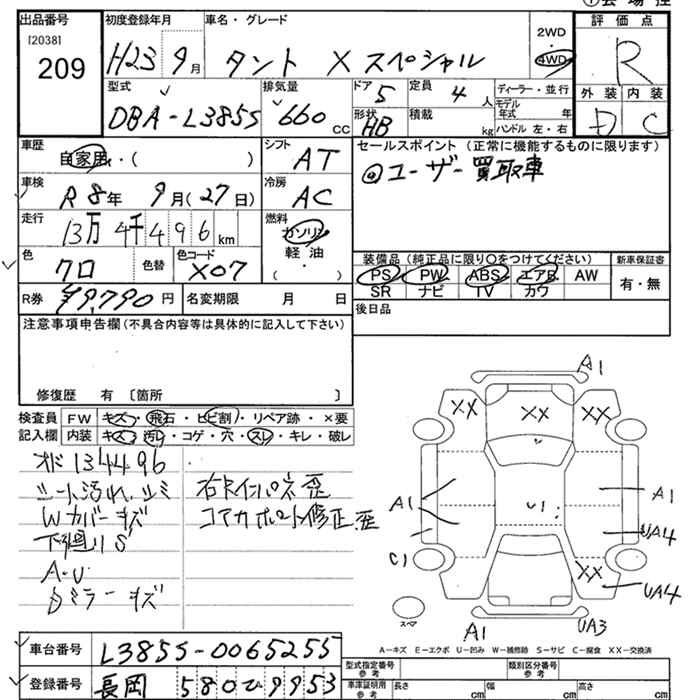 ①会場控
出品番号
[2038]
209
初度登録年月
H23 9月
車名・グレード
タント X スペシャル
2WD
4WD
評価点
R
外装 内装
D C
型式
DBA-L385S
排気量
660 CC
ドア 5
定員 4 人
形状 HB
積載 kg
ディーラー・並行
モデル年式 年
ハンドル 左・右
車歴
自家用・( )
シフト
AT
セールスポイント (正常に機能するものに限ります)
◎ユーザー買取車
車検
R 8年 9月(27日)
冷房
AC
走行
13万4千496km
燃料
ガソリン
軽油
( ・ )
色
クロ
色替
色コード
X07
装備品 (純正品に限り○をつけてください)
PS PW ABS エアB AW
SR ナビ TV カワ
新車保証書
有・無
R券 ¥9,790円
名変期限 月 日
後日品
注意事項申告欄 (不具合内容等は具体的に記入して下さい)
修復歴 有 〔箇所 〕
検査員
記入欄
FW キズ・飛石・ヒビ割・リペア跡・×要
内装 キズ・汚レ・コゲ・穴・スレ・キレ・破レ
134496
シート汚れ、シミ
Wカバーキズ
下廻りS
A・U
Dミラーキズ
右Fインパネ歪
コアサポート修正、歪
A1
XX XX XX
A1 U1 A1
UA4
C1
XX
UA4
A1 UA3
スペア
A-キズ E-エクボ U-凹み W-補修跡 S-サビ C-腐食 XX-交換済
車台番号 L385S-0065255
登録番号 長岡 580 ひ 9953
型式指定番号 参考
類別区分番号 参考
車庫証明用 参考
長さ cm 幅 cm 高さ cm